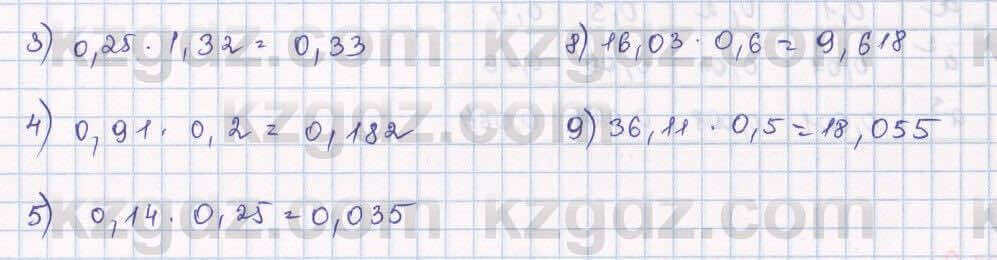 3) 0,25 · 1,32 = 0,33
4) 0,91 · 0,2 = 0,182
5) 0,14 · 0,25 = 0,035
8) 16,03 · 0,6 = 9,618
9) 36,11 · 0,5 = 18,055
kzgdz.com kzgdz.com
kzgdz.com
kzgdz.com kzgdz.com